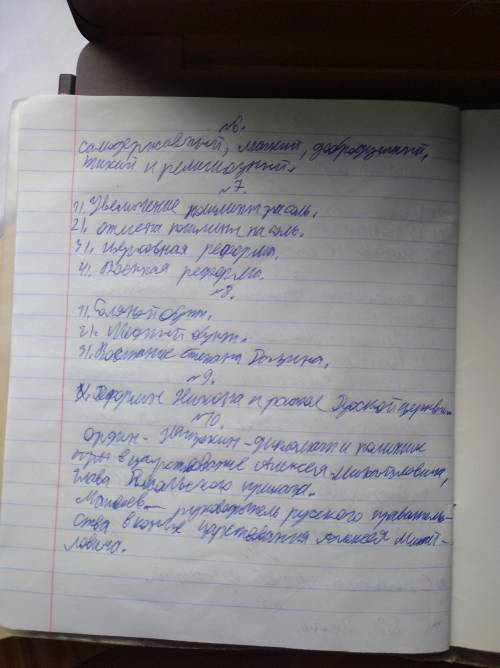 №6.
самодержавный, мягкий, добродушный,
тихий и религиозный.
№7.
1). Увеличение пошлины на соль.
2). отмена пошлины на соль.
3). Церковная реформа.
4). Военная реформа.
№8.
1). Соляной бунт.
2). Медный бунт.
3). Востание Степана Разина.
№9.
Реформы Никона и раскол Русской церкви.
№10.
Ордин-Нащокин-дипломат и политик
в царствование Алексея Михайловича,
глава Посольского приказа.
Матвеев- руководитель русского правитель-
ства в конце царствования Алексея Михай-
ловича.